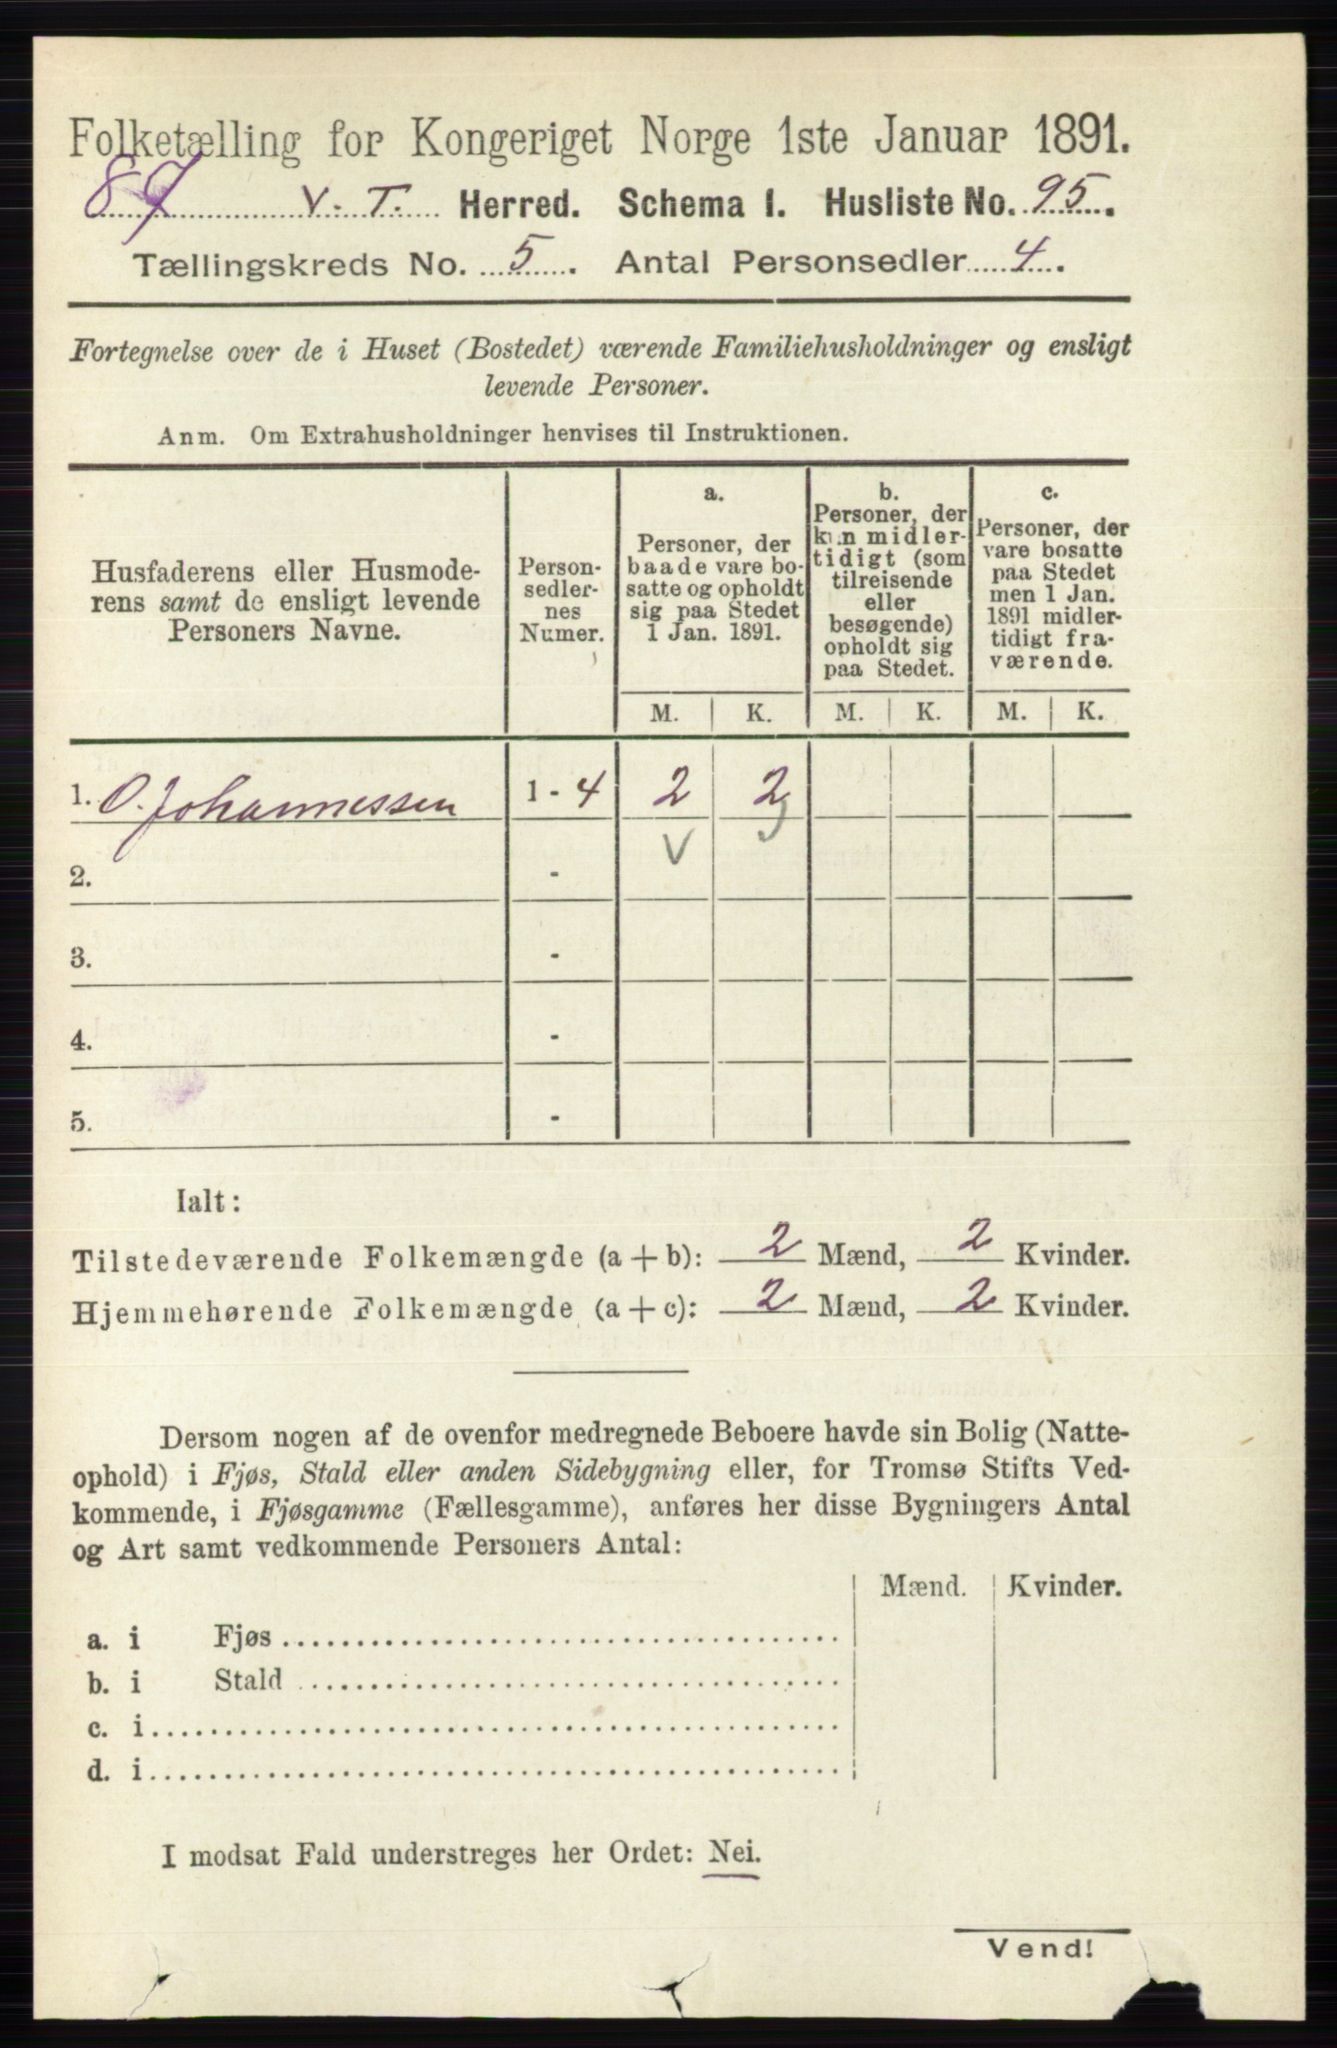 Folketælling for Kongeriget Norge 1ste Januar 1891.
87 V. T. Herred. Schema I. Husliste No. 95.
Tællingskreds No. 5. Antal Personsedler 4.
Fortegnelse over de i Huset (Bostedet) værende Familiehusholdninger og ensligt
levende Personer.
Anm. Om Extrahusholdninger henvises til Instruktionen.
Husfaderens eller Husmode-
rens samt de ensligt levende
Personers Navne.
Person-
sedler-
nes
Numer.
a.
Personer, der
baade vare bo-
satte og opholdt
sig paa Stedet
1 Jan. 1891.
b.
Personer, der
kun midler-
tidigt (som
tilreisende
eller
besøgende)
opholdt sig
paa Stedet.
c.
Personer, der
vare bosatte
paa Stedet
men 1 Jan.
1891 midler-
tidigt fra-
værende.
M. K. M. K. M. K.
1. O. Johannessen 1 - 4 2 2
2. -
3. -
4. -
5. -
Ialt:
Tilstedeværende Folkemængde (a + b): 2 Mænd, 2 Kvinder.
Hjemmehørende Folkemængde (a + c): 2 Mænd, 2 Kvinder.
Dersom nogen af de ovenfor medregnede Beboere havde sin Bolig (Natte-
ophold) i Fjøs, Stald eller anden Sidebygning eller, for Tromsø Stifts Ved-
kommende, i Fjøsgamme (Fællesgamme), anføres her disse Bygningers Antal
og Art samt vedkommende Personers Antal:
Mænd. Kvinder.
a. i Fjøs
b. i Stald
c. i
d. i
I modsat Fald understreges her Ordet: Nei.
Vend!